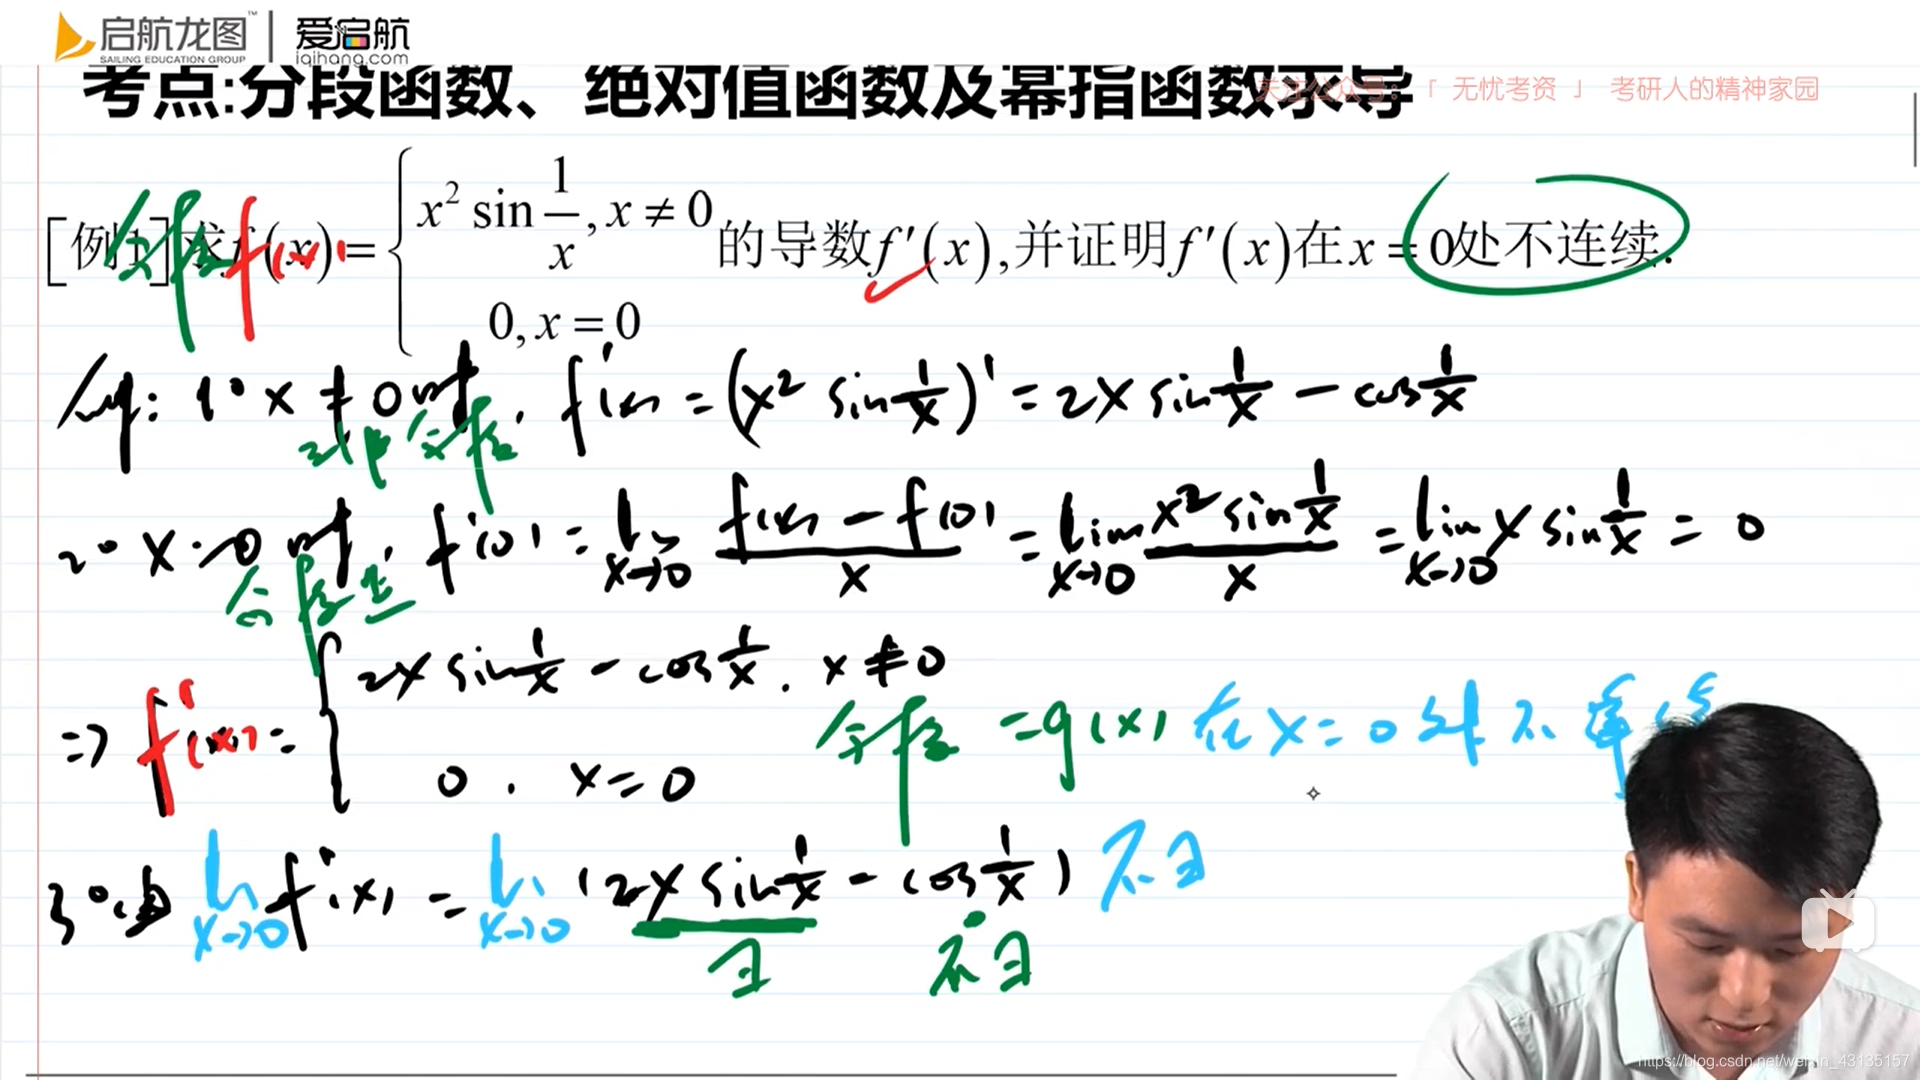 启航龙图™ | 爱启航
SAILING EDUCATION GROUP iqihang.com
考点:分段函数、绝对值函数及幂指函数求导
关注公众号:「 无忧考资 」 考研人的精神家园
[例1]求f(x)={x² sin 1/x, x ≠ 0
0, x = 0
的导数f′(x),并证明f′(x)在x = 0处不连续.
分段 f(x)
1° x ≠ 0时, f′(x) = (x² sin 1/x)′ = 2x sin 1/x − cos 1/x
非分段
2° x=0时, f′(0) = lim x→0 (f(x) − f(0))/x = lim x→0 (x² sin 1/x)/x = lim x→0 x sin 1/x = 0
分段点
⇒ f′(x) = {2x sin 1/x − cos 1/x, x ≠ 0
0, x = 0
分段 = g(x) 在 x = 0 处不连续
3° 由 lim x→0 f′(x) = lim x→0 (2x sin 1/x − cos 1/x) 不∃
∃ 不∃
https://blog.csdn.net/weixin_43135157